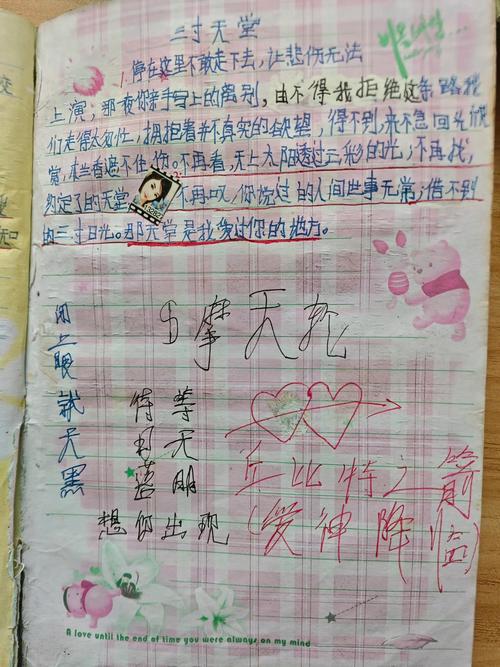 三寸天堂
1. 停在这里不敢走下去，让悲伤无法
上演，那夜你亲手写上的离别，由不得我拒绝这条路我
们走得太匆忙，拥抱着并不真实的欲望，得不到来不急回头欣
赏，木兰香遮不住伤。不再看，天上太阳透过云彩的光，不再找，
约定了的天堂 不再叹，你说过的人间世事无常，借不到
的三寸日光。那天堂是我爱过你的地方。
摩天轮
闭上眼就天黑
待等
天
蓝朋
想你出现
丘比特之箭
(爱神降临)
A love until the end of time you were always on my mind